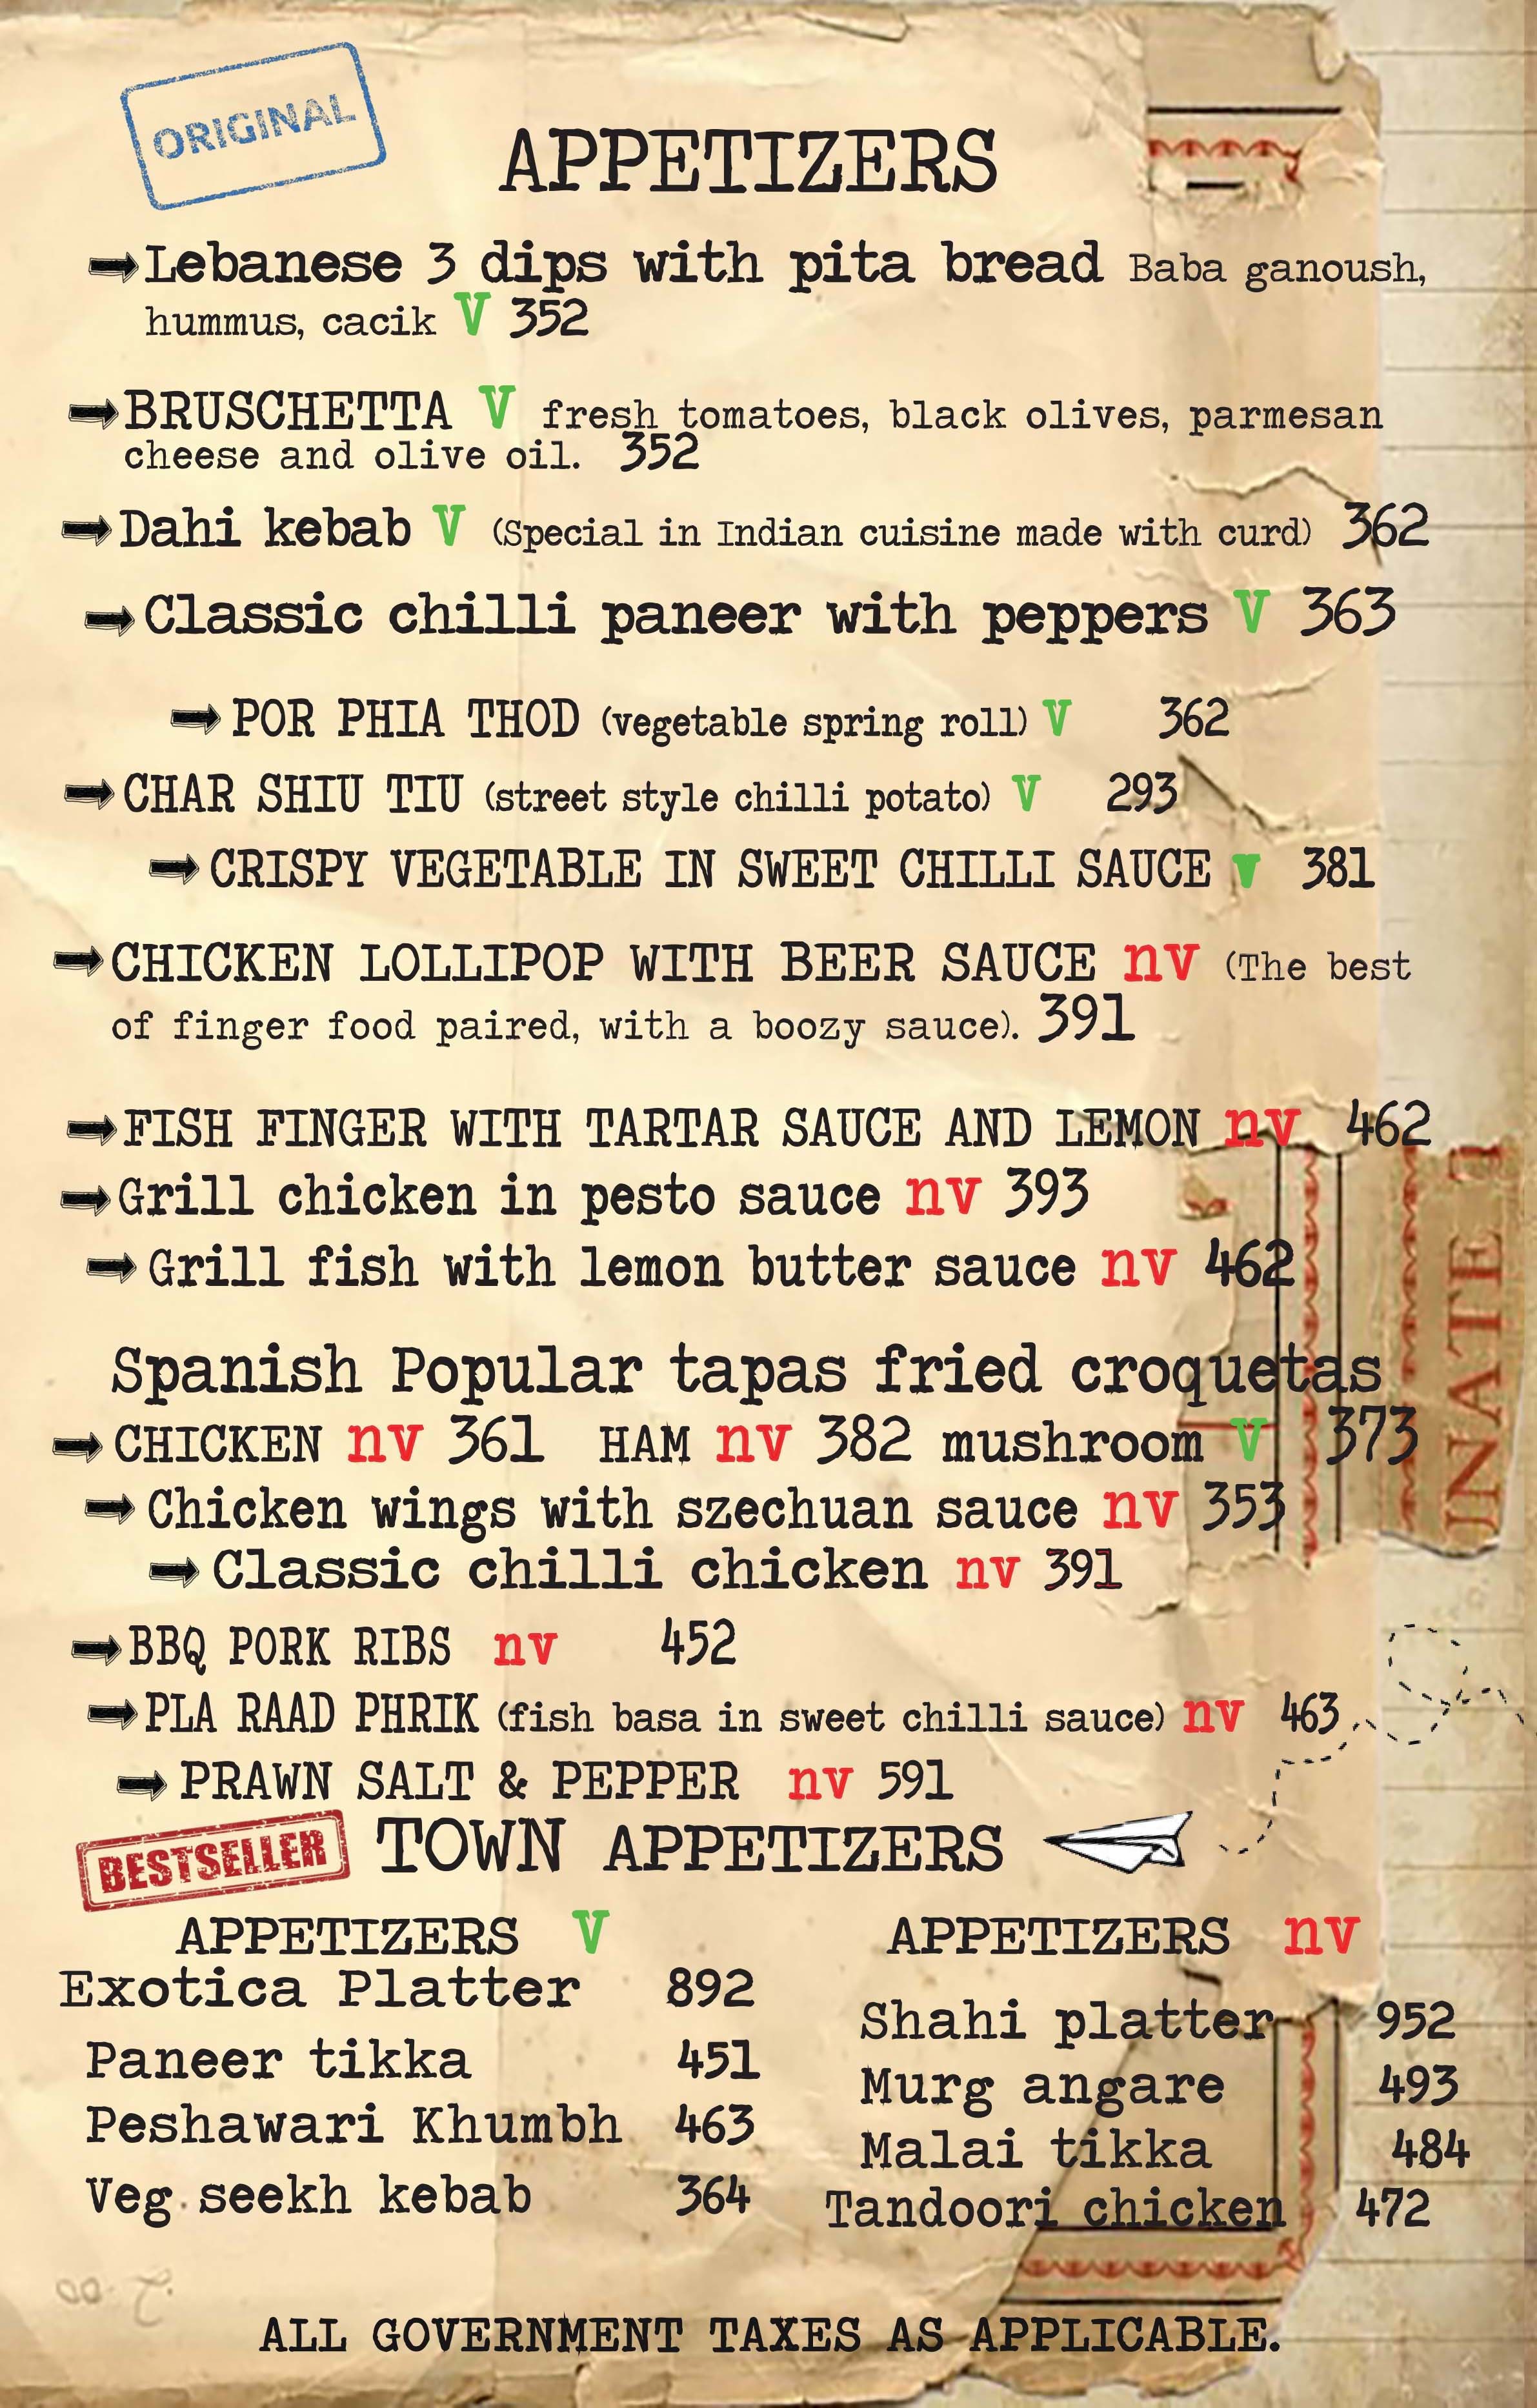 ORIGINAL
APPETIZERS
Lebanese 3 dips with pita bread Baba ganoush,
hummus, cacik V 352
BRUSCHETTA V fresh tomatoes, black olives, parmesan
cheese and olive oil. 352
Dahi kebab V (Special in Indian cuisine made with curd) 362
Classic chilli paneer with peppers V 363
POR PHIA THOD (vegetable spring roll) V 362
CHAR SHIU TIU (street style chilli potato) V 293
CRISPY VEGETABLE IN SWEET CHILLI SAUCE v 381
CHICKEN LOLLIPOP WITH BEER SAUCE nv (The best
of finger food paired, with a boozy sauce). 391
FISH FINGER WITH TARTAR SAUCE AND LEMON nv 462
Grill chicken in pesto sauce nv 393
Grill fish with lemon butter sauce nv 462
Spanish Popular tapas fried croquetas
CHICKEN nv 361 HAM nv 382 mushroom V 373
Chicken wings with szechuan sauce nv 353
Classic chilli chicken nv 391
BBQ PORK RIBS nv 452
PLA RAAD PHRIK (fish basa in sweet chilli sauce) nv 463
PRAWN SALT & PEPPER nv 591
BESTSELLER TOWN APPETIZERS
APPETIZERS V
Exotica Platter 892
Paneer tikka 451
Peshawari Khumbh 463
Veg seekh kebab 364
APPETIZERS nv
Shahi platter 952
Murg angare 493
Malai tikka 484
Tandoori chicken 472
ALL GOVERNMENT TAXES AS APPLICABLE.
INATE